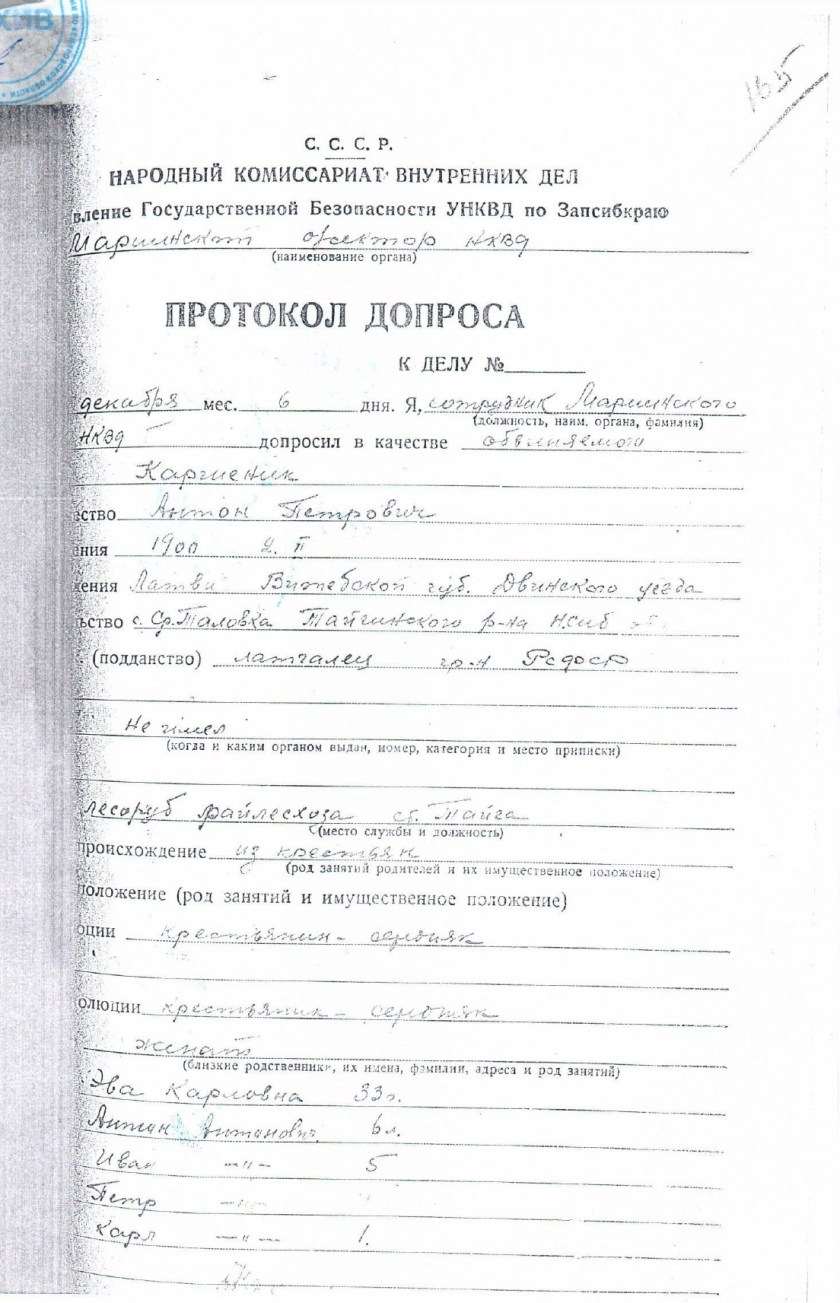 165
С. С. С. Р.
НАРОДНЫЙ КОМИССАРИАТ ВНУТРЕННИХ ДЕЛ
вление Государственной Безопасности УНКВД по Запсибкраю
Мариинский НКВД
(наименование органа)
ПРОТОКОЛ ДОПРОСА
К ДЕЛУ №
декабря мес. 6 дня. Я, сотрудник Мариинского
(должность, наим. органа, фамилия)
НКВД допросил в качестве обвиняемого
ство Антон Петрович
ния 1900 2. II
ения Латви Витебской губ. Двинского уезда
ьство с. Ср.Таловка Тайгинского р-на
(подданство) латгалец гр-н РСФСР
Не имел
(когда и каким органом выдан, номер, категория и место приписки)
лесоруб райлесхоза ст. Тайга
(место службы и должность)
происхождение из крестьян
(род занятий родителей и их имущественное положение)
положение (род занятий и имущественное положение)
ции крестьянин - середняк
олюции крестьянин - середняк
женат
(близкие родственники, их имена, фамилии, адреса и род занятий)
Эва Карловна 33г.
Антон Антонович 6 л.
Иван —„— 5
Петр —„—
Карл —„— 1.